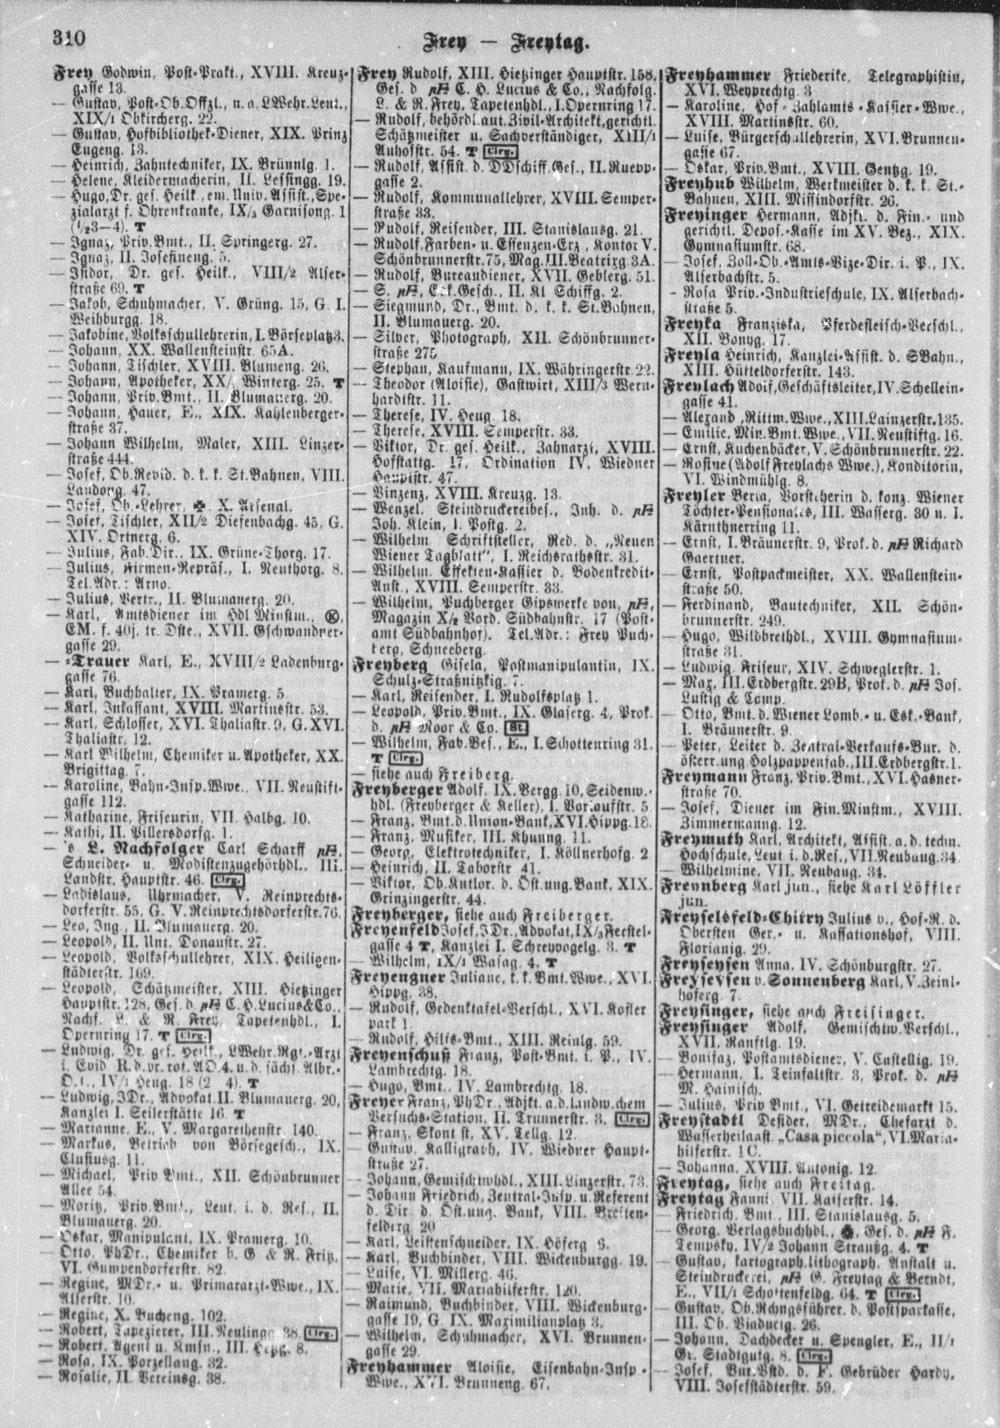 310
Frey — Freytag.
Frey Godwin, Post-Prakt., XVIII. Kreuz-
gasse 13.
— Gustav, Post-Ob.Offzl., u. a. LWehr.Leut.,
XIX/1 Obkircherg. 22.
— Gustav, Hofbibliothek-Diener, XIX. Prinz
Eugeng. 13.
— Heinrich, Zahntechniker, IX. Brünnlg. 1.
— Helene, Kleidermacherin, II. Lessingg. 19.
— Hugo, Dr. ges. Heilk., em. Univ. Assist., Spe-
zialarzt f. Ohrenkranke, IX/3 Garnisong. 1
(½3—4). T
— Ignaz, Priv.Bmt., II. Springerg. 27.
— Ignaz, II. Josefineng. 5.
— Isidor, Dr. ges. Heilk., VIII/2 Alser-
straße 69. T
— Jakob, Schuhmacher, V. Grüng. 15, G. I.
Weihburgg. 18.
— Jakobine, Volksschullehrerin, I. Börseplatz 3.
— Johann, XX. Wallensteinstr. 65A.
— Johann, Tischler, XVIII. Blumeng. 26.
— Johann, Apotheker, XX/1 Winterg. 25. T
— Johann, Priv.Bmt., II. Blumauerg. 20.
— Johann, Hauer, E., XIX. Kahlenberger-
straße 37.
— Johann Wilhelm, Maler, XIII. Linzer-
straße 444.
— Josef, Ob.Revid. d. k. k. St.Bahnen, VIII.
Laudong. 47.
— Josef, Ob.-Lehrer, ✠, X. Arsenal.
— Josef, Tischler, XII/2 Diefenbachg. 45, G.
XIV. Ortnerg. 6.
— Julius, Fab.Dir., IX. Grüne-Thorg. 17.
— Julius, Firmen-Repräs., I. Neuthorg. 8.
Tel.Adr.: Arno.
— Julius, Vertr., II. Blumauerg. 20.
— Karl, Amtsdiener im Hdl Minstm.,
EM. f. 40j. tr. Dste., XVII. Gschwandner-
gasse 29.
— -Trauer Karl, E., XVIII/2 Ladenburg-
gasse 76.
— Karl, Buchhalter, IX. Pramerg. 5.
— Karl, Inkassant, XVIII. Martinsstr. 53.
— Karl, Schlosser, XVI. Thaliastr. 9, G. XVI.
Thaliastr. 12.
— Karl Wilhelm, Chemiker u. Apotheker, XX.
Brigittag. 7.
— Karoline, Bahn-Insp.Wwe., VII. Neustift-
gasse 112.
— Katharine, Friseurin, VII. Halbg. 10.
— Kathi, II. Pillersdorfg. 1.
— 's L. Nachfolger Carl Scharff pH,
Schneider- u. Modistenzugehörhdl., III.
Landstr. Hauptstr. 46. Clrg.
— Ladislaus, Uhrmacher, V. Reinprechts-
dorferstr. 55, G. V. Reinprechtsdorferstr. 76.
— Leo, Ing., II. Blumauerg. 20.
— Leopold, II. Unt. Donaustr. 27.
— Leopold, Volksschullehrer, XIX. Heiligen-
städterstr. 169.
— Leopold, Schätzmeister, XIII. Hietzinger
Hauptstr. 128, Ges. d pH C. H. Lucius & Co.,
Nachf. L. & R. Frey, Tapetenhdl., I.
Opernring 17. T Clrg.
— Ludwig, Dr. ges. Heilk., LWehr.Rgt.-Arzt
i. Evid. R. d. pr. rot. AO. 4. u. d. sächs. Albr.-
O. t., IV/1 Heug. 18 (2—4). T
— Ludwig, JDr., Advokat, II. Blumauerg. 20,
Kanzlei I. Seilerstätte 16. T
— Marianne, E., V. Margarethenstr. 140.
— Markus, Betrieb von Börsegesch., IX.
Clusiusg. 11.
— Michael, Priv Bmt., XII. Schönbrunner
Allee 54.
— Moritz, Priv.Bmt., Leut. i. d. Res., II.
Blumauerg. 20.
— Oskar, Manipulant, IX. Pramerg. 10.
— Otto, PhDr., Chemiker b. G & R. Fritz,
VI. Gumpendorferstr. 82.
— Regine, MDr.- u. Primararzt-Wwe., IX.
Alserstr. 10.
— Regine, X. Bucheng. 102.
— Robert, Tapezierer, III. Neulingg. 38. Clrg.
— Robert, Agent u. Kmsn., III. Hetzg. 8.
— Rosa, IX. Porzellang. 32.
— Rosalie, II. Vereinsg. 38.
Frey Rudolf, XIII. Hietzinger Hauptstr. 158,
Ges. d pH C. H. Lucius & Co., Nachfolg.
L. & R. Frey, Tapetenhdl., I. Opernring 17.
— Rudolf, behördl.aut. Zivil-Architekt, gerichtl.
Schätzmeister u. Sachverständiger, XIII/1
Auhofstr. 54. T Clrg.
— Rudolf, Assist. d. DDschiff.Ges., II. Ruepp-
gasse 2.
— Rudolf, Kommunallehrer, XVIII. Semper-
straße 33.
— Rudolf, Reisender, III. Stanislausg. 21.
— Rudolf, Farben- u. Essenzen-Erz, Kontor V.
Schönbrunnerstr. 75, Mag. III. Beatrixg 3A.
— Rudolf, Bureaudiener, XVII. Geblerg. 51.
— S. pH, Eck.Gesch., II. Kl Schiffg. 2.
— Siegmund, Dr., Bmt. d. k. k. St.Bahnen,
II. Blumauerg. 20.
— Silver, Photograph, XII. Schönbrunner-
straße 275
— Stephan, Kaufmann, IX. Währingerstr. 22.
— Theodor (Aloisie), Gastwirt, XIII/3 Wern-
hardtstr. 11.
— Therese, IV. Heug. 18.
— Therese, XVIII. Semperstr. 33.
— Viktor, Dr. ges. Heilk., Zahnarzt, XVIII.
Hofstattg. 17, Ordination IV. Wiedner
Hauptstr. 47.
— Vinzenz, XVIII. Kreuzg. 13.
— Wenzel, Steindruckereibes., Inh. d. pH
Joh. Klein, I. Postg. 2.
— Wilhelm Schriftsteller, Red. d. „Neuen
Wiener Tagblatt“, I. Reichsrathsstr. 31.
— Wilhelm, Effekten-Kassier d. Bodenkredit-
Anst., XVIII. Semperstr. 33.
— Wilhelm, Puchberger Gipswerke von, pH,
Magazin X/2 Vord. Südbahnstr. 17 (Post-
amt Südbahnhof). Tel.Adr.: Frey Puch-
berg, Schneeberg.
Freyberg Gisela, Postmanipulantin, IX.
Schulz-Straßnitzkig. 7.
— Karl, Reisender, I. Rudolfsplatz 1.
— Leopold, Priv.Bmt., IX. Glaserg. 4, Prok.
d. pH Moor & Co. St.
— Wilhelm, Fab.Bes., E., I. Schottenring 31.
T Clrg.
— siehe auch Freiberg.
Freyberger Adolf, IX. Vergg. 10, Seidenw.-
hdl. (Freyberger & Keller), I. Vorlaufstr. 5.
— Franz, Bmt. d. Union-Bank, XVI. Hippg. 18.
— Franz, Musiker, III. Khunng. 11.
— Georg, Elektrotechniker, I. Köllnerhofg. 2
— Heinrich, II. Taborstr 41.
— Viktor, Ob.Kntlor. d. Öst.ung. Bank, XIX.
Grinzingerstr. 44.
Freyberger, siehe auch Freiberger.
Freyenfeld Josef, JDr., Advokat, IX/3 Ferstel-
gasse 4 T, Kanzlei I. Schreyvogelg. 3. T
— Wilhelm, IX/1 Wasag. 4. T
Freyengner Juliane, k. k. Bmt.Wwe., XVI.
Hippg. 38.
— Rudolf, Gedenktafel-Verschl., XVI. Kofler
park 1.
— Rudolf, Hilfs-Bmt., XIII. Reinlg. 59.
Freyenschuß Franz, Post-Bmt. i. P., IV.
Lambrechtg. 18.
— Hugo, Bmt., IV. Lambrechtg. 18.
Freyer Franz, PhDr., Adjkt. a. d. landw. chem
Versuchs-Station, II. Trunnerstr. 3. Clrg.
— Franz, Skontist, XV. Tellg. 12.
— Gustav, Kalligraph, IV. Wiedner Haupt-
straße 27.
— Johann, Gemischtwhdl., XIII. Linzerstr. 73.
— Johann Friedrich, Zentral-Insp. u. Referent
d. Dir d. Öst.ung. Bank, VIII. Breiten-
felderg 20
— Karl, Leistenschneider, IX. Höferg 6.
— Karl, Buchbinder, VIII. Wickenburgg. 19.
— Luise, VI. Millerg. 46.
— Marie, VII. Mariahilferstr. 120.
— Raimund, Buchbinder, VIII. Wickenburg-
gasse 19, G. IX. Maximilianplatz 3.
— Wilhelm, Schuhmacher, XVI. Brunnen-
gasse 29.
Freyhammer Aloisie, Eisenbahn-Insp.-
Wwe., XVI. Brunneng. 67.
Freyhammer Friederike, Telegraphistin,
XVI. Weyprechtg. 3
— Karoline, Hof-Zahlamts-Kassier-Wwe.,
XVIII. Martinsstr. 60.
— Luise, Bürgerschullehrerin, XVI. Brunnen-
gasse 67.
— Oskar, Priv.Bmt., XVIII. Gentzg. 19.
Freyhub Wilhelm, Werkmeister d. k. k. St.-
Bahnen, XIII. Missindorfstr. 26.
Freyinger Hermann, Adjkt. d. Fin.- und
gerichtl. Depos.-Kasse im XV. Bez., XIX.
Gymnasiumstr. 68.
— Josef, Zoll-Ob.-Amts-Vize-Dir. i. P., IX.
Alserbachstr. 5.
— Rosa Priv.-Industrieschule, IX. Alserbach-
straße 5.
Freyka Franziska, Pferdefleisch-Verschl.,
XII. Bonyg. 17.
Freyla Heinrich, Kanzlei-Assist. d. SBahn.,
XIII. Hütteldorferstr. 143.
Freylach Adolf, Geschäftsleiter, IV. Schellein-
gasse 41.
— Alexand., Rittm.Wwe., XIII. Lainzerstr. 135.
— Emilie, Min.Bmt.Wwe., VII. Neustiftg. 16.
— Ernst, Kuchenbäcker, V. Schönbrunnerstr. 22.
— Rosine (Adolf Freylachs Wwe.), Konditorin,
VI. Windmühlg. 8.
Freyler Berta, Vorsteherin d. konz. Wiener
Töchter-Pensionates, III. Wasserg. 30 u. I.
Kärnthnerring 11.
— Ernst, I. Bräunerstr. 9, Prok. d. pH Richard
Gaertner.
— Ernst, Postpackmeister, XX. Wallenstein-
straße 50.
— Ferdinand, Bautechniker, XII. Schön-
brunnerstr. 249.
— Hugo, Wildbrethdl., XVIII. Gymnasium-
straße 31.
— Ludwig, Friseur, XIV. Schweglerstr. 1.
— Max, III. Erdbergstr. 29B, Prok. d. pH Jos.
Lustig & Comp.
— Otto, Bmt. d. Wiener Lomb.- u. Esk.-Bank,
I. Bräunerstr. 9.
— Peter, Leiter d. Zentral-Verkaufs-Bur. d.
österr.ung. Holzpappenfab., III. Erdbergstr. 1.
Freymann Franz, Priv.Bmt., XVI. Hasner-
straße 70.
— Josef, Diener im Fin.Minstm., XVIII.
Zimmermanng. 12.
Freymuth Karl, Architekt, Assist. a. d. techn.
Hochschule, Leut i. d. Res., VII. Neubaug. 34.
— Wilhelmine, VII. Neubaug. 34.
Freynberg Karl jun., siehe Karl Löffler
jun.
Freyselsfeld-Chitry Julius v., Hof-R. d.
Obersten Ger.- u. Kassationshof, VIII.
Florianig. 29.
Freyseysen Anna, IV. Schönburgstr. 27.
Freyseysen v. Sonnenberg Karl, V. Zeinl-
hoferg 7.
Freysinger, siehe auch Freisinger.
Freysinger Adolf, Gemischtw.Verschl.,
XVII. Ranftlg. 19.
— Bonifaz, Postamtsdiener, V. Castellig. 19.
— Hermann, I. Teinfaltstr. 3, Prok. d. pH
M. Hainisch.
— Julius, Priv Bmt., VI. Getreidemarkt 15.
Freystadtl Desider, MDr., Chefarzt d.
Wasserheilanst. „Casa piccola“, VI. Maria-
hilferstr. 1C.
— Johanna, XVIII. Antonig. 12.
Freytag, siehe auch Freitag.
Freytag Fanni, VII. Kaiserstr. 14.
— Friedrich, Bmt., III. Stanislausg. 5.
— Georg, Verlagsbuchhdl., Ges. d. pH F.
Tempsky, IV/2 Johann Straußg. 4. T
— Gustav, kartograph.lithograph. Anstalt u.
Steindruckerei, pH G. Freytag & Berndt,
E., VII/1 Schottenfeldg. 64. T Clrg.
— Gustav, Ob.Rchngsführer. d. Postsparkasse,
III. Ob. Viaductg. 26.
— Johann, Dachdecker u. Spengler, E., II/1
Gr. Stadtgutg. 8. Clrg.
— Josef, Bur.Vstd. d. F. Gebrüder Hardy,
VIII. Josefstädterstr. 59.